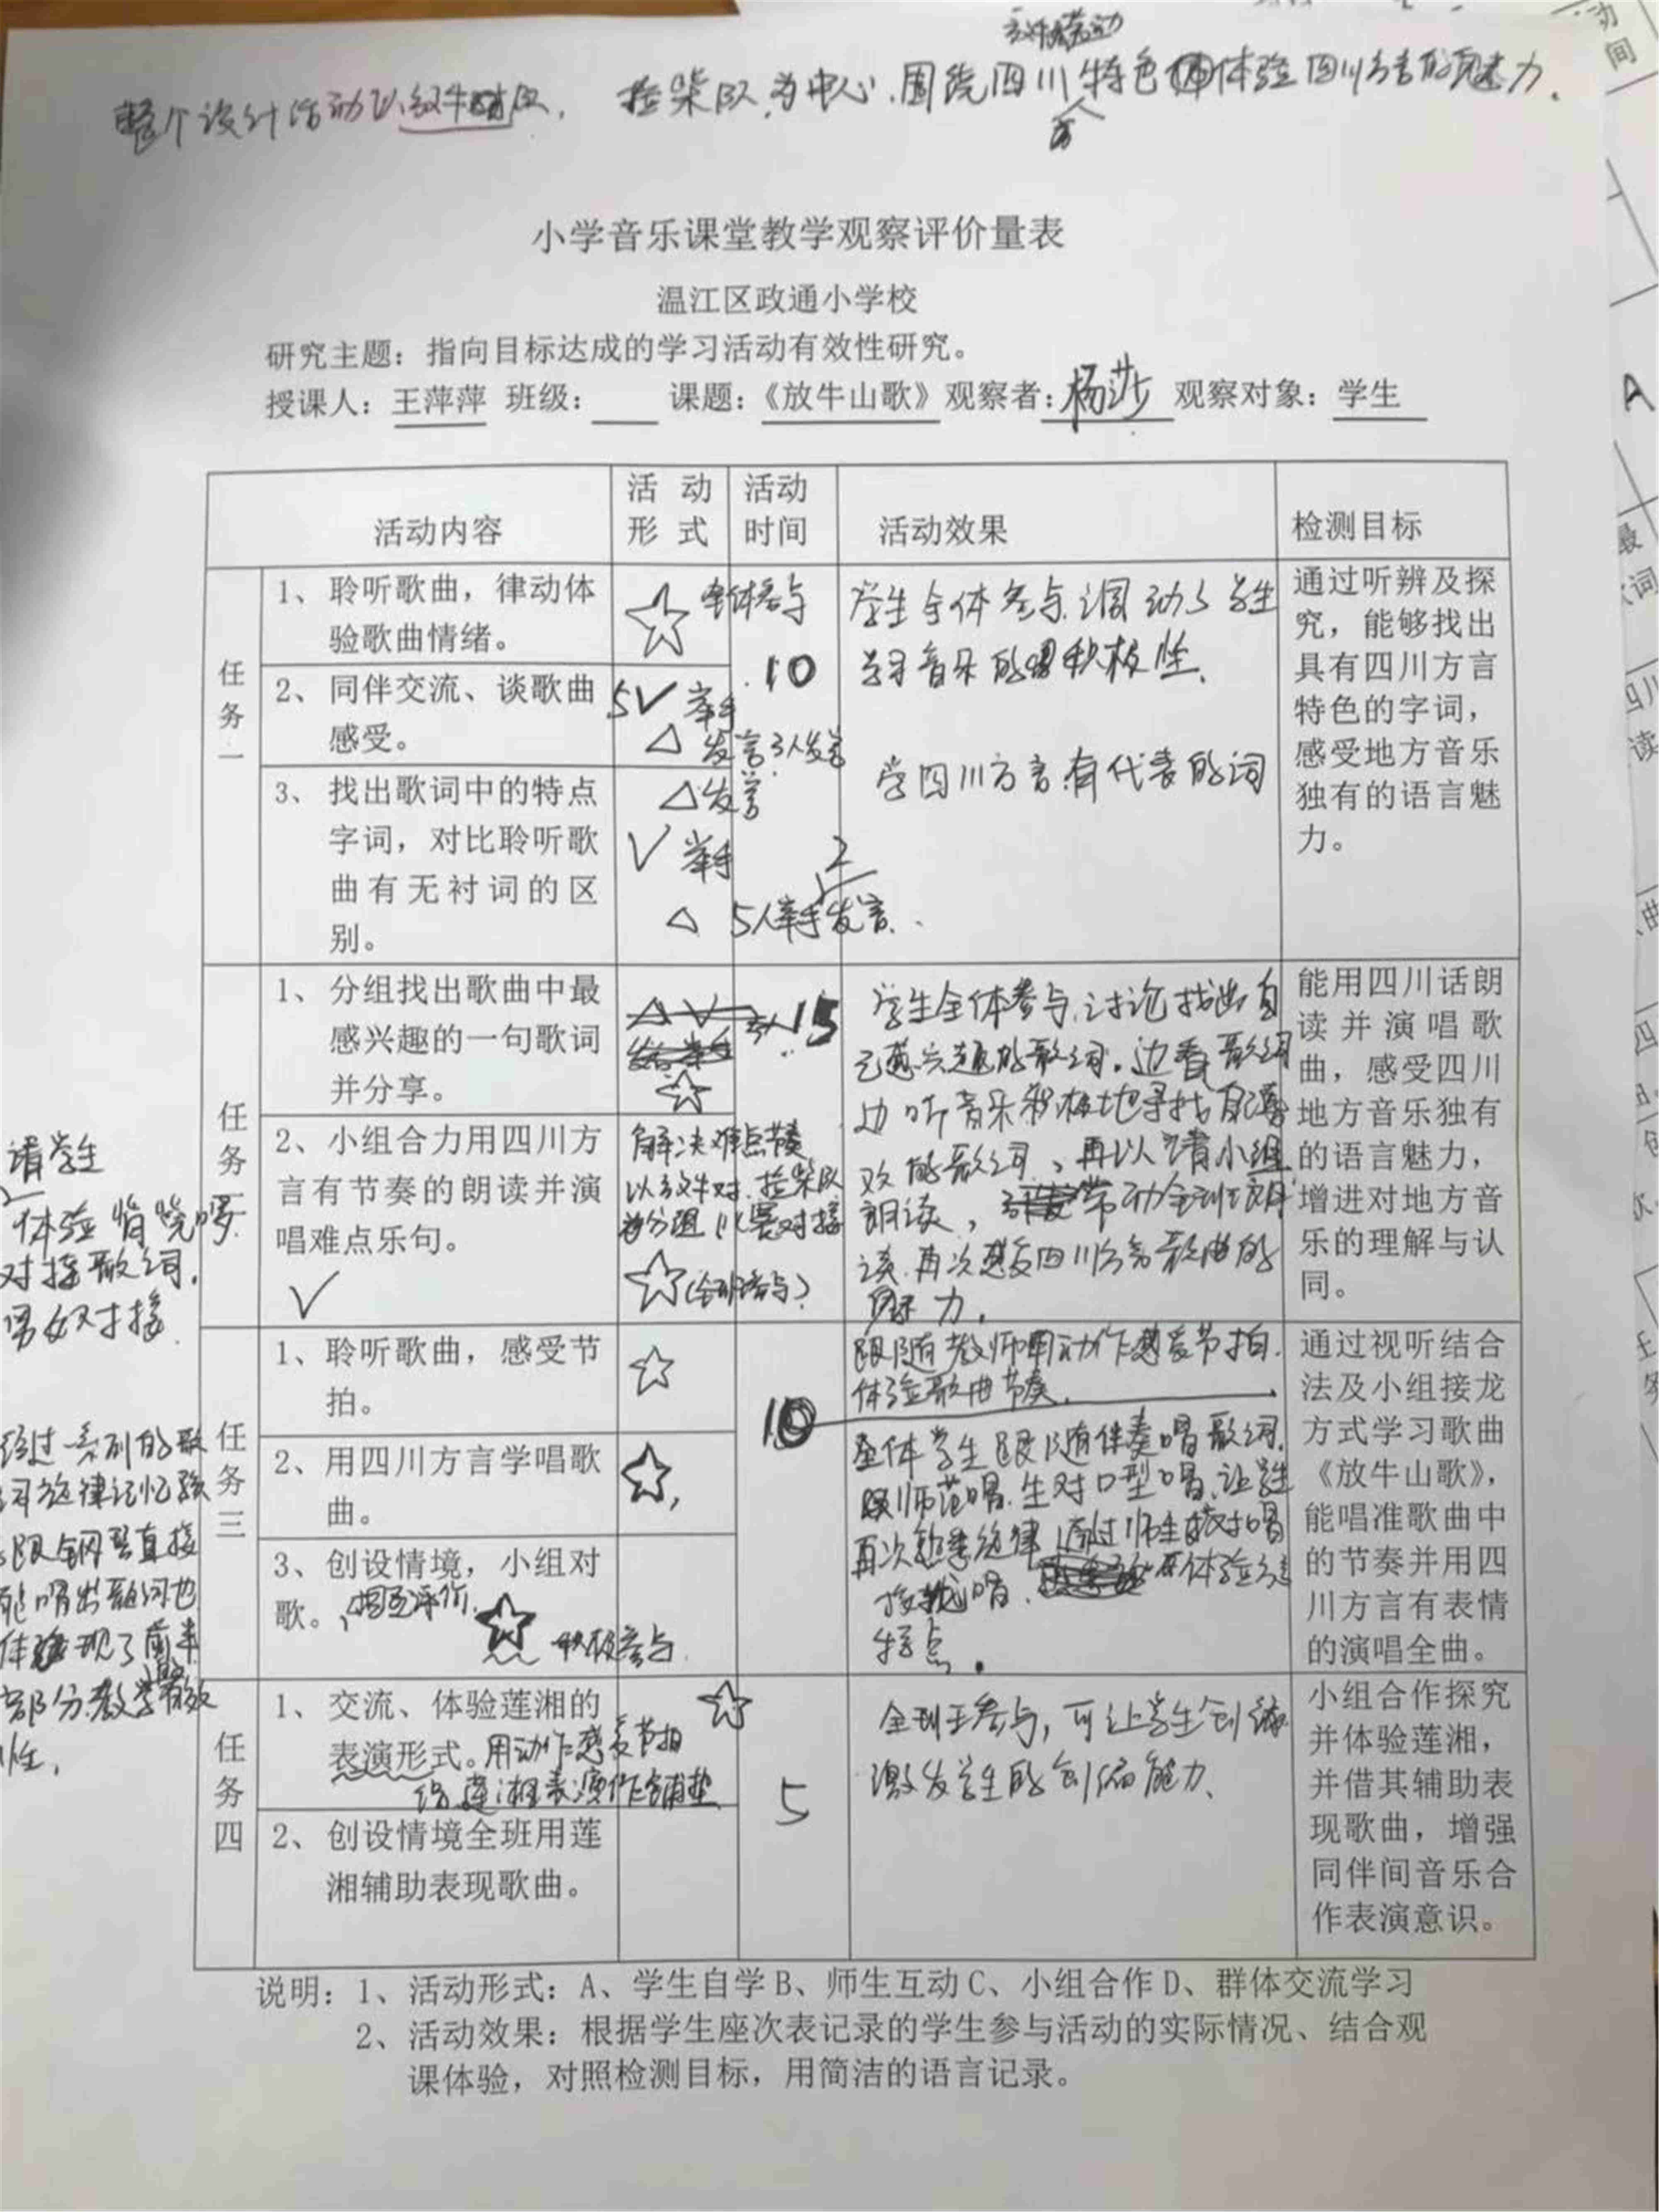 整个设计活动以放牛队、捡柴队为中心,围绕四川特色 体验四川方言的魅力。
小学音乐课堂教学观察评价量表
温江区政通小学校
研究主题:指向目标达成的学习活动有效性研究。
授课人:王萍萍 班级: 课题:《放牛山歌》观察者:杨莎 观察对象:学生
活动内容
活 动
形 式
活动
时间
活动效果
检测目标
任务一
1、聆听歌曲,律动体
验歌曲情绪。
☆ 全体参与
2、同伴交流、谈歌曲
感受。
5✓ 举手
△ 发言3人发言
3、找出歌词中的特点
字词,对比聆听歌
曲有无衬词的区
别。
△发言
✓ 举手
2
△ 5人举手发言.
10
学生全体参与,调动了学生
学习音乐的积极性、
学四川方言有代表的词
通过听辨及探
究,能够找出
具有四川方言
特色的字词,
感受地方音乐
独有的语言魅
力。
任务二
1、分组找出歌曲中最
感兴趣的一句歌词
并分享。
☆
15
2、小组合力用四川方
言有节奏的朗读并演
唱难点乐句。
✓
解决难点节奏
以放牛对、捡柴队
为分组 比赛对接
☆(全班参与)
学生全体参与,讨论找出自
己感兴趣的歌词。边看歌词
边听音乐积极地寻找自己喜
欢的歌词,再以请小组
朗读, 带动全班朗
读,再次感受四川方言歌曲的
魅力。
能用四川话朗
读并演唱歌
曲,感受四川
地方音乐独有
的语言魅力,
增进对地方音
乐的理解与认
同。
请学生
体验
对接歌词,
男女对接
任务三
1、聆听歌曲,感受节
拍。
☆
2、用四川方言学唱歌
曲。
☆
3、创设情境,小组对
歌。,相互评价.
☆ 积极参与
10
跟随教师用动作感受节拍.
体验歌曲节奏.
全体学生跟随伴奏唱歌词.
跟师范唱.生对口型唱.让学生
再次熟悉旋律,通过师生接对唱
接龙唱. 体验
特点。
通过视听结合
法及小组接龙
方式学习歌曲
《放牛山歌》,
能唱准歌曲中
的节奏并用四
川方言有表情
的演唱全曲。
经过一系列的歌
词旋律记忆
跟钢琴直接
能唱出歌词也
体现了前半
部分教学有效
性,
任务四
1、交流、体验莲湘的
表演形式。用动作感受节拍
给莲湘表演作铺垫
☆
2、创设情境全班用莲
湘辅助表现歌曲。
5
全班参与,可让学生创编
激发学生的创编能力、
小组合作探究
并体验莲湘,
并借其辅助表
现歌曲,增强
同伴间音乐合
作表演意识。
说明:1、活动形式:A、学生自学 B、师生互动 C、小组合作 D、群体交流学习
2、活动效果:根据学生座次表记录的学生参与活动的实际情况、结合观
课体验,对照检测目标,用简洁的语言记录。